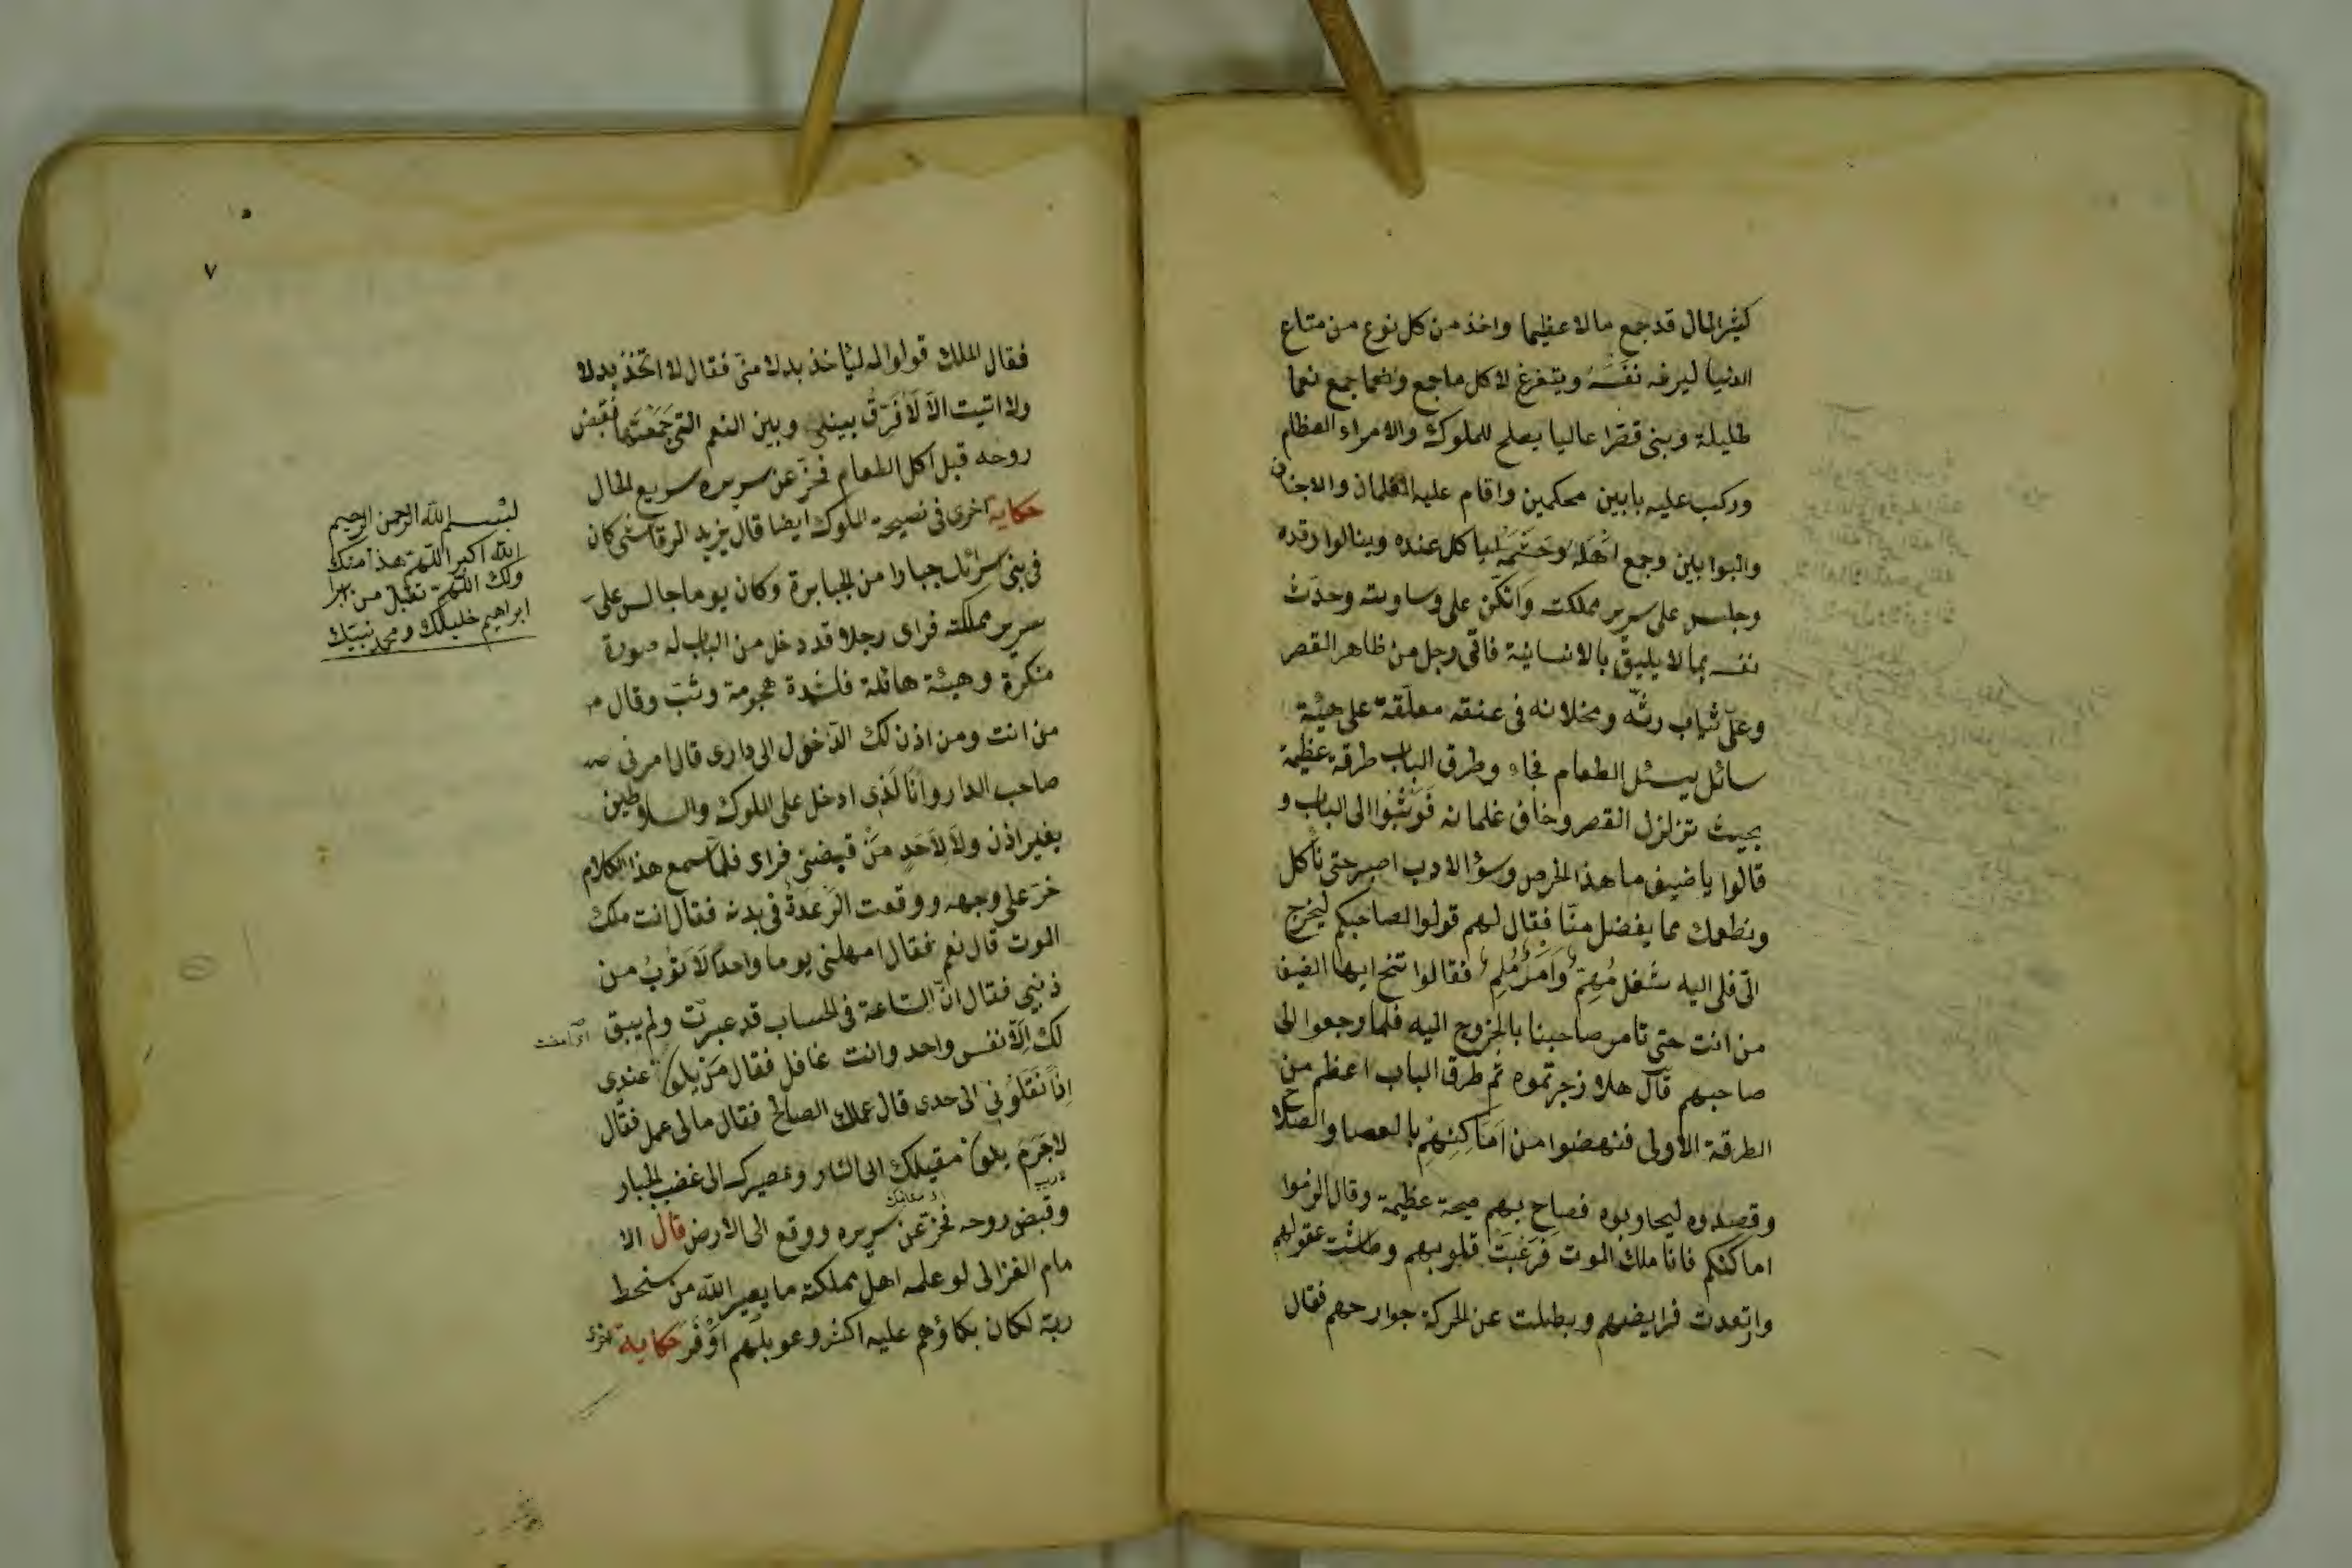 كثير المال قد جمع مالا عظيما واخذ من كل نوع من متاع
الدنيا ليرفه نفسه ويتفرغ لاكل ما جمع جمع نعما
طليلة وبنى قصرا عاليا يصلح للملوك والامراء العظام
وركب عليه بابين محكمين واقام عليه الغلمان والاجناد
والبوابين وجمع اهله وحشمه لياكل عنده وينالوا رفده
وجلس على سرير مملكته واتكئ على وساوته وحدث
نفسه بما لا يليق بالانسانية فاتى رجل من ظاهر القصر
وعلى ثياب رثه ومخلانه فى عنقه معلقة على هيئة
سائل يسئل الطعام فجاء وطرق الباب طرقة عظيمة
بحيث تزلزل القصر وخاف غلمانه فوثبوا الى الباب و
قالوا يا ضيف ما هذا الحرص وسؤ الادب اصبر حتى نأكل
ونطعمك مما يفضل منا فقال لهم قولوا لصاحبكم ليخرج
الى فلى اليه شغل مهم وامر ملم فقالوا تنح ايها الضيف
من انت حتى تامر صاحبنا بالخروج اليه فلما رجعوا الى
صاحبهم قال هلا زجرتموه ثم طرق الباب اعظم من
الطرقة الاولى فنهضوا من اماكنهم بالعصا والصلاح
وقصدوه ليحاوبوه فصاح بهم صيحة عظيمة وقال الزموا
اماكنكم فانا ملك الموت فرغبت قلوبهم وطاشت عقولهم
وارتعدت فرايضهم وبطلت عن الحركة جوارحهم فقال
٧
فقال الملك قولوا له ليأخذ بدلا منى فقال لا اتخذ بدلا
ولا اتيت الا لافرق بينك وبين النعم التى جمعتها فقبض
روحه قبل اكل الطعام فخر عن سريره سريع الحال
حكاية اخرى فى نصيحة الملوك ايضا قال يزيد الرقاشى كان
فى بنى سرائل جبارا من الجبابرة وكان يوما جالس على
سرير مملكته فراى رجلا قد دخل من الباب له صورة
منكرة وهيئة هائلة فلشدة هجومة وثب وقال
من انت ومن اذن لك الدخول الى دارى قال امرنى
صاحب الدار وانا لذى ادخل على الملوك والسلاطين
بغير اذن ولا لاحد من قبضتى فرار فلما سمع هذا الكلام
خر على وجهه ووقعت الرعدة فى بدنه فقال انت ملك
الموت قال نعم فقال امهلنى يوما واحدا لاتوب من
ذنبى فقال ان الساعة فى الحساب قد عبرت ولم يبق
لك الا نفس واحد وانت غافل فقال من يكون عندى
اذا نقلونى الى حدى قال عملك الصالح فقال مالى عمل فقال
لاجرم يكون مقيلك الى النار ومصيرك الى غضب الجبار
وقبض روحه فخر عن سريره ووقع الى الارض قال الا
مام الغزالى لو علمه اهل مملكته ما يصير الله من سخط
ربه لكان بكاؤهم عليه اكثر وعويلهم اوفر حكاية اخرى
بسم الله الرحمن الرحيم
الله اكبر اللهم هذا منك
ولك اللهم تقبل من
ابراهيم خليلك ومحمد نبيك